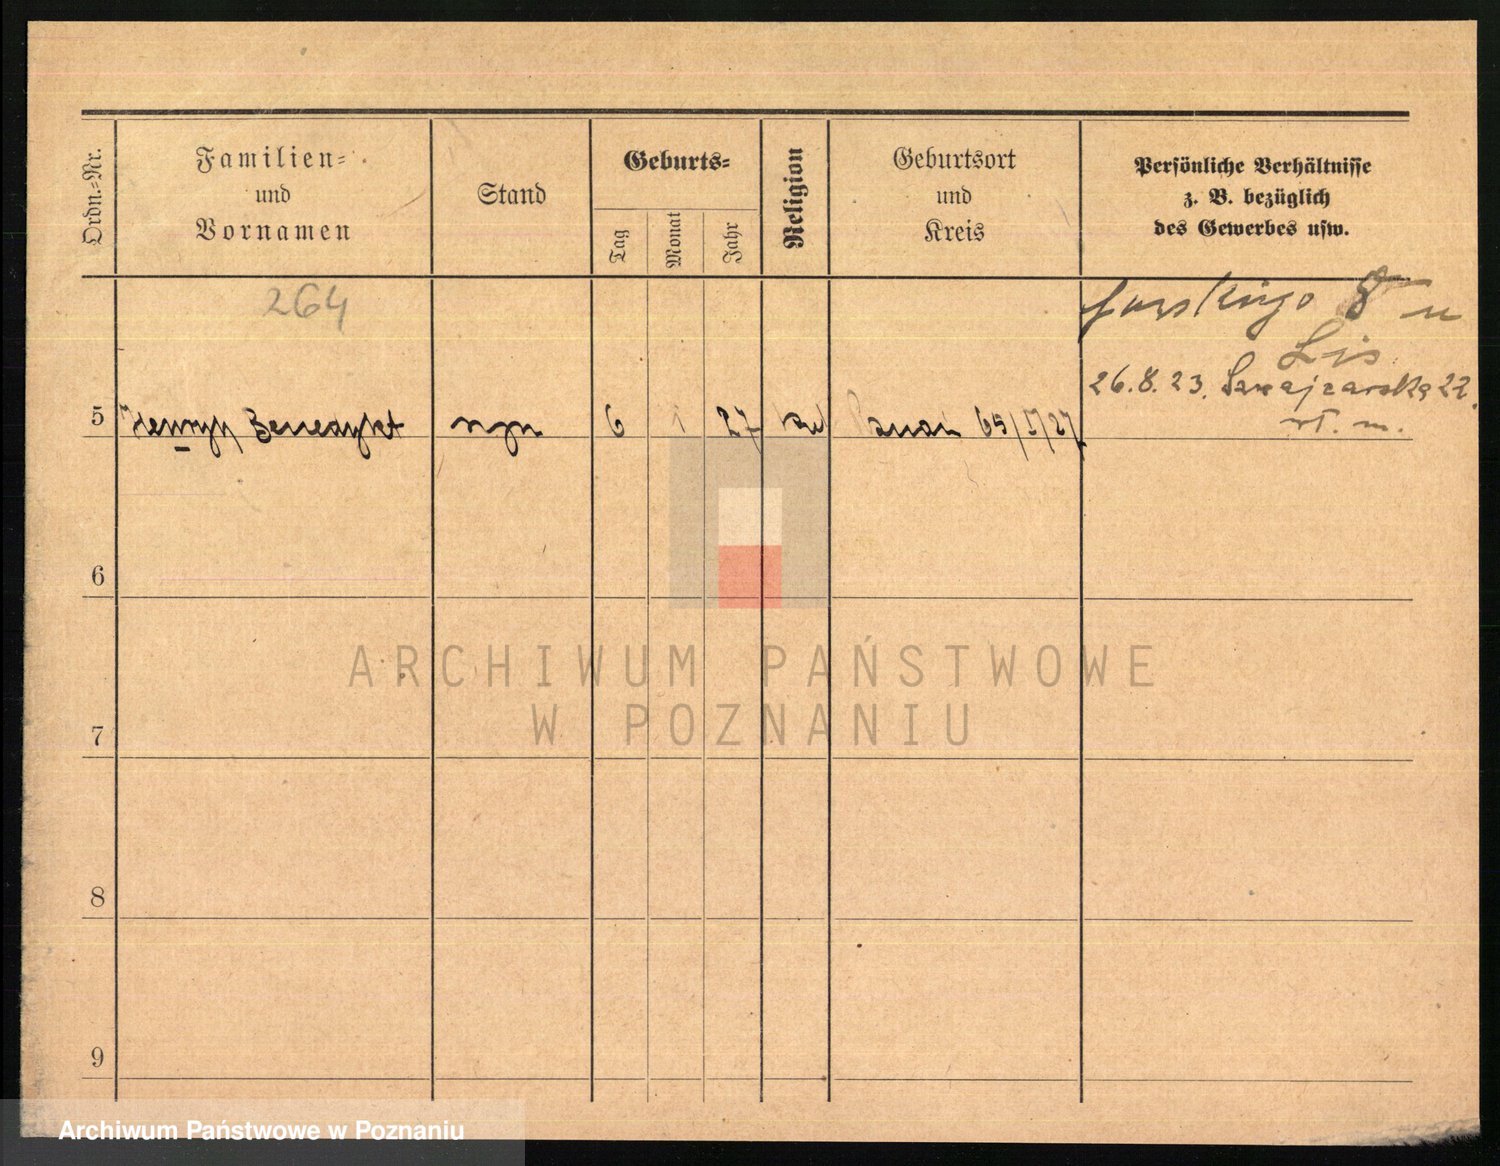 Ordn.=Nr.
Familien=
und
Vornamen
Stand
Geburts=
Tag
Monat
Jahr
Religion
Geburtsort
und
Kreis
Persönliche Verhältnisse
z. B. bezüglich
des Gewerbes usw.
264
8 u
Lis
26.8.23. 22.
5 Henryk Benedykt syn 6 1 27 kat Poznań 65/I/27
6
7
8
9
ARCHIWUM PAŃSTWOWE
W POZNANIU
Archiwum Państwowe w Poznaniu